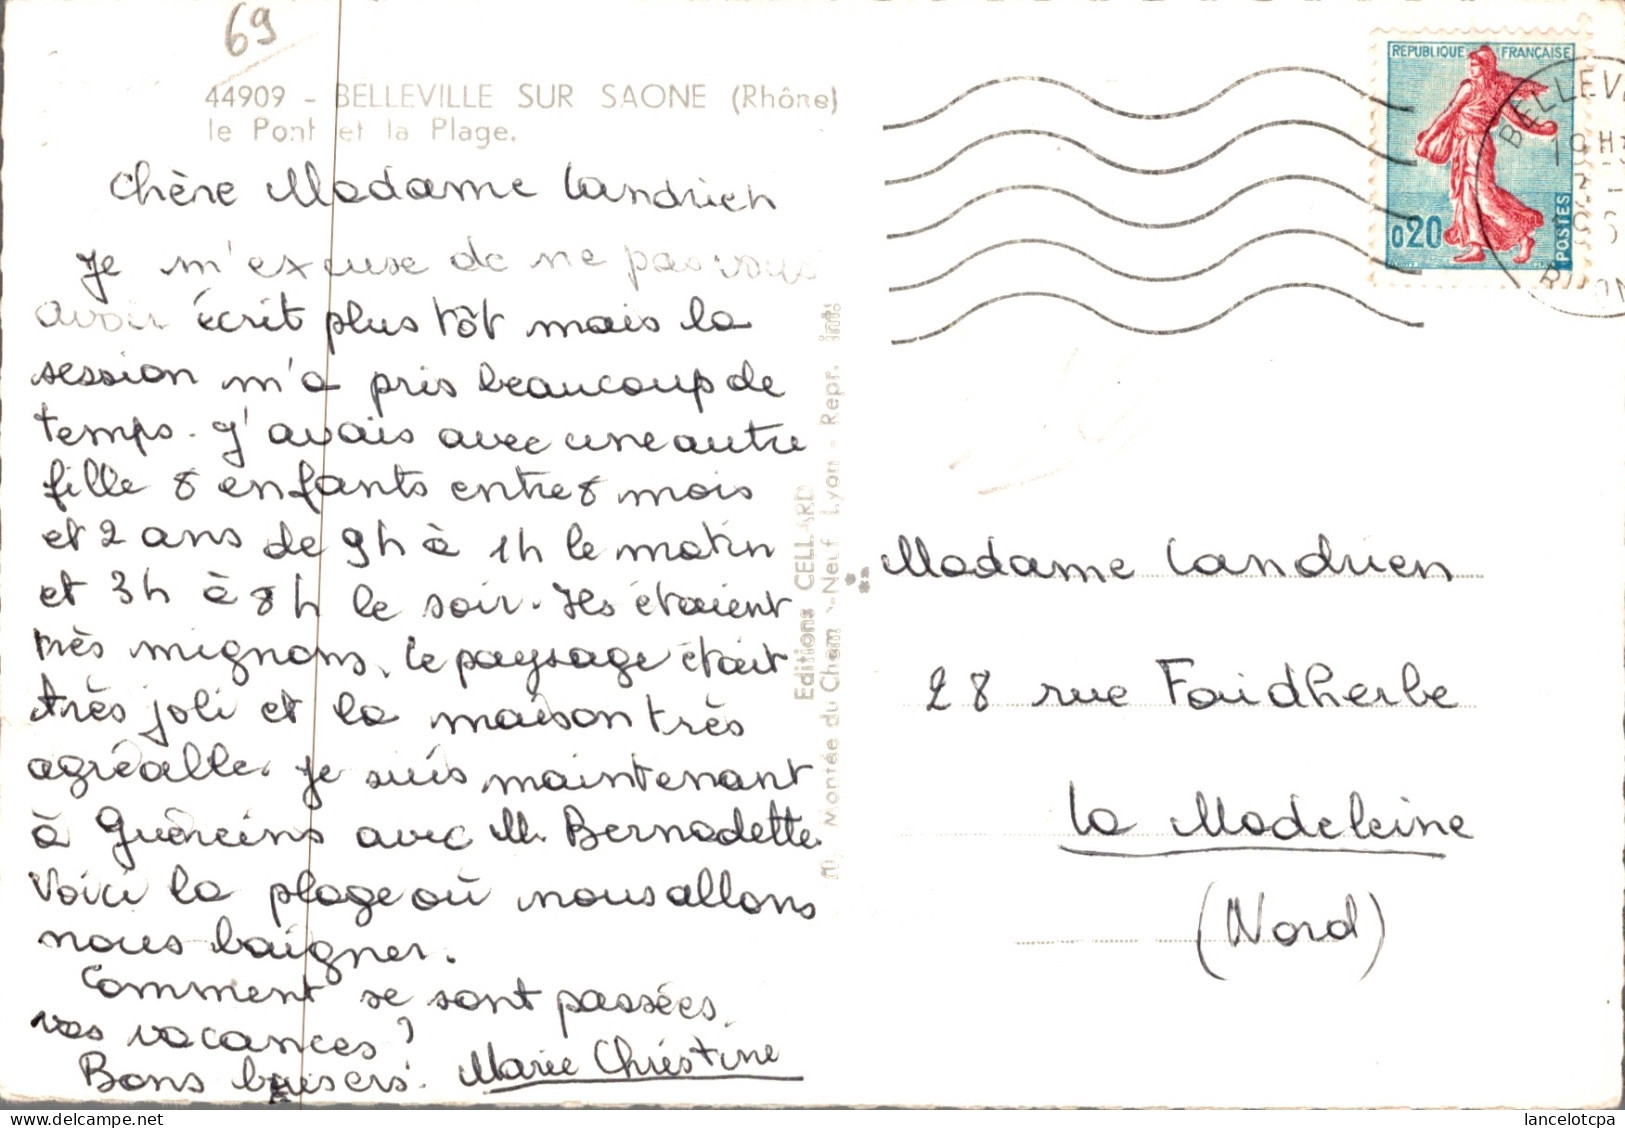 69
44909 - BELLEVILLE SUR SAONE (Rhône)
le Pont et la Plage.
Chère Madame Landrien
Je m'excuse de ne pas vous
avoir écrit plus tôt mais la
session m'a pris beaucoup de
temps. J'avais avec une autre
fille 8 enfants entre 8 mois
et 2 ans de 9h à 1h le matin
et 3h à 8h le soir. Ils étaient
très mignons, le paysage était
très joli et la maison très
agréable. Je suis maintenant
à Guéreins avec M. Bernadette
Voici la plage où nous allons
nous baigner.
Comment se sont passées
vos vacances?
Bons baisers. Marie Christine
Editions CELLARD
Montée du Chem -Neuf Lyon - Repr. int.
REPUBLIQUE FRANÇAISE
0,20
POSTES
BELLEV
19H
RHON
Madame Landrien
28 rue Faidherbe
La Madeleine
(Nord)
delcampe.net
lancelotcpa